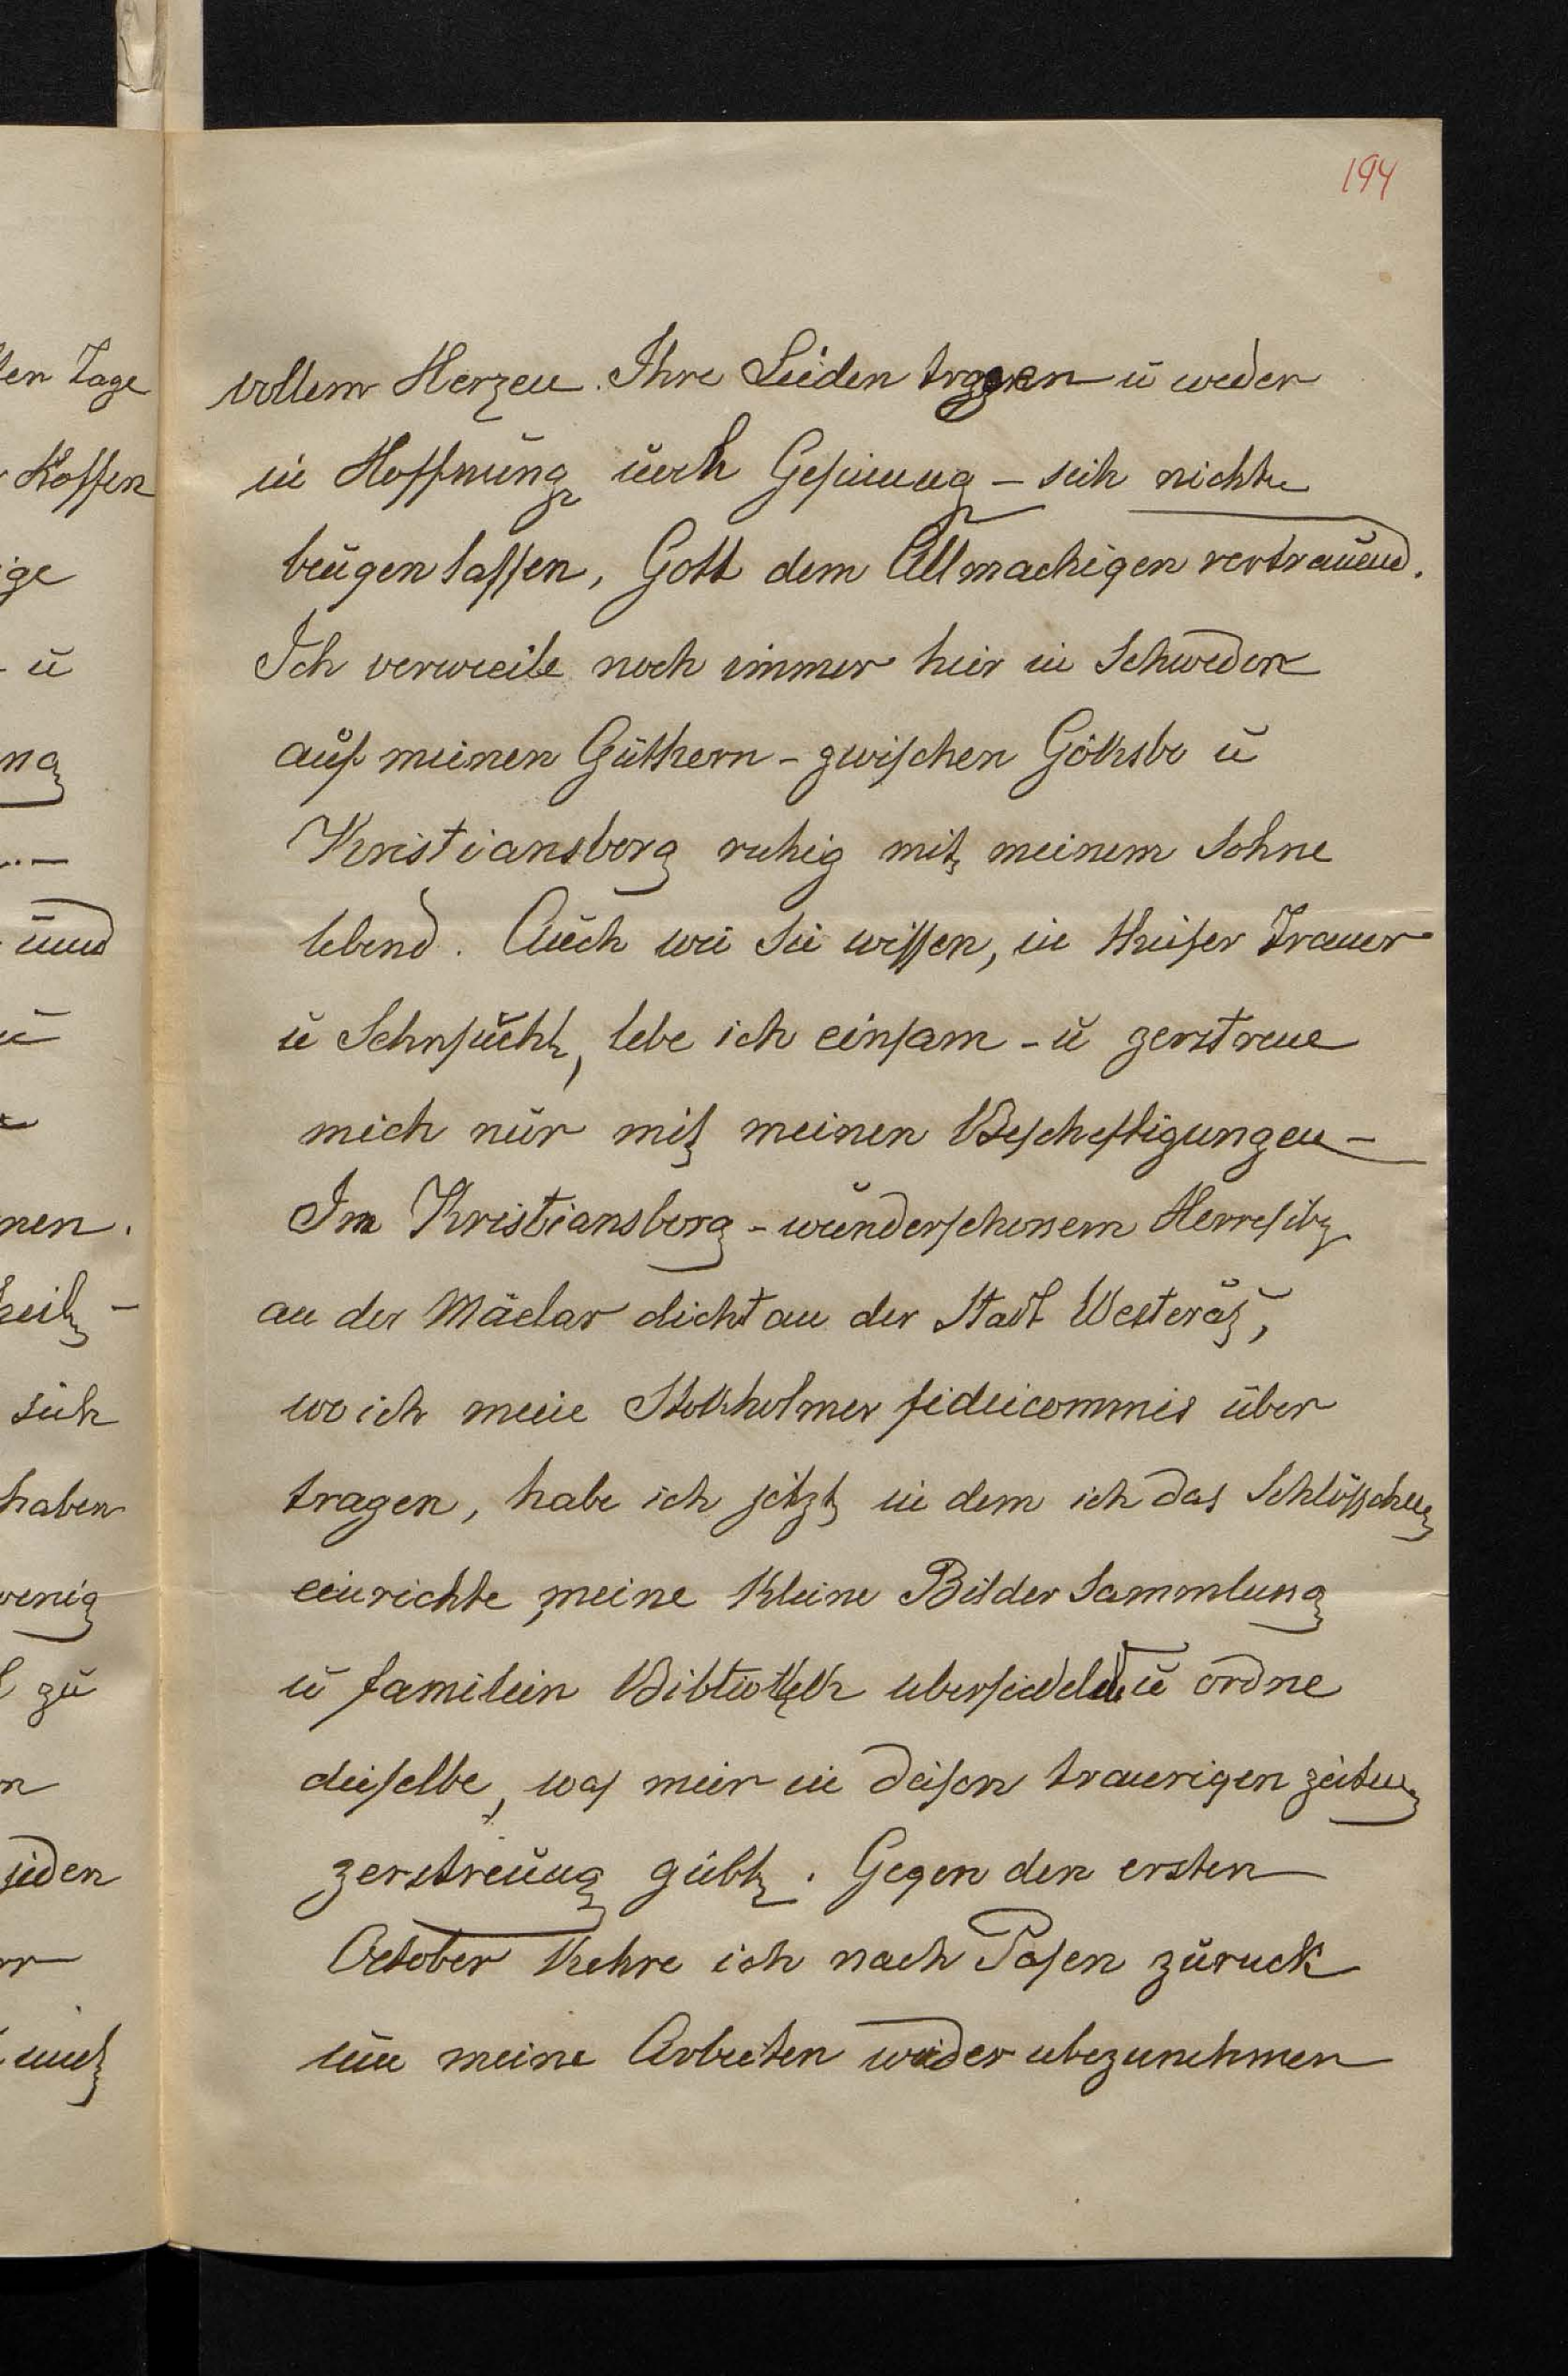 194
vollem Herzen. Ihre Leiden tragen u weder
in Hoffnung noch Gesinnung - sich nicht
beugen lassen, Gott dem Allmachigen vertrauend.
Ich verweile noch immer hier in Schweden
auf meinen Güthern - zwischen Göksbo u
Kristiansborg ruhig mit meinem Sohne
lebend. Auch wie Sie wissen, in thiefer Trauer
u Sehnsucht, lebe ich einsam - u zerstreue
mich nur mit meinen Bescheftigungen -
Im Kristiansborg - wunderschonem Herresitz
an der Mäelar dicht an der Stadt Westerås,
wo ich meine Stokholmer fideicommis über
tragen, habe ich jetzt in dem ich das Schlösschen
einrichte, meine kleine Bilder Sammlung
u familien Bibliothek ubersiedelt u ordne
dieselbe, was mir in diesen traurigen zeiten
zerstreuung giebt. Gegen den ersten
October kehre ich nach Posen zuruck
um meine Arbeiten wieder
len Tage
Hoffen
ige
- u
ng
und
u
nen.
heil -
sich
haben
wenig
zu
n
jeden